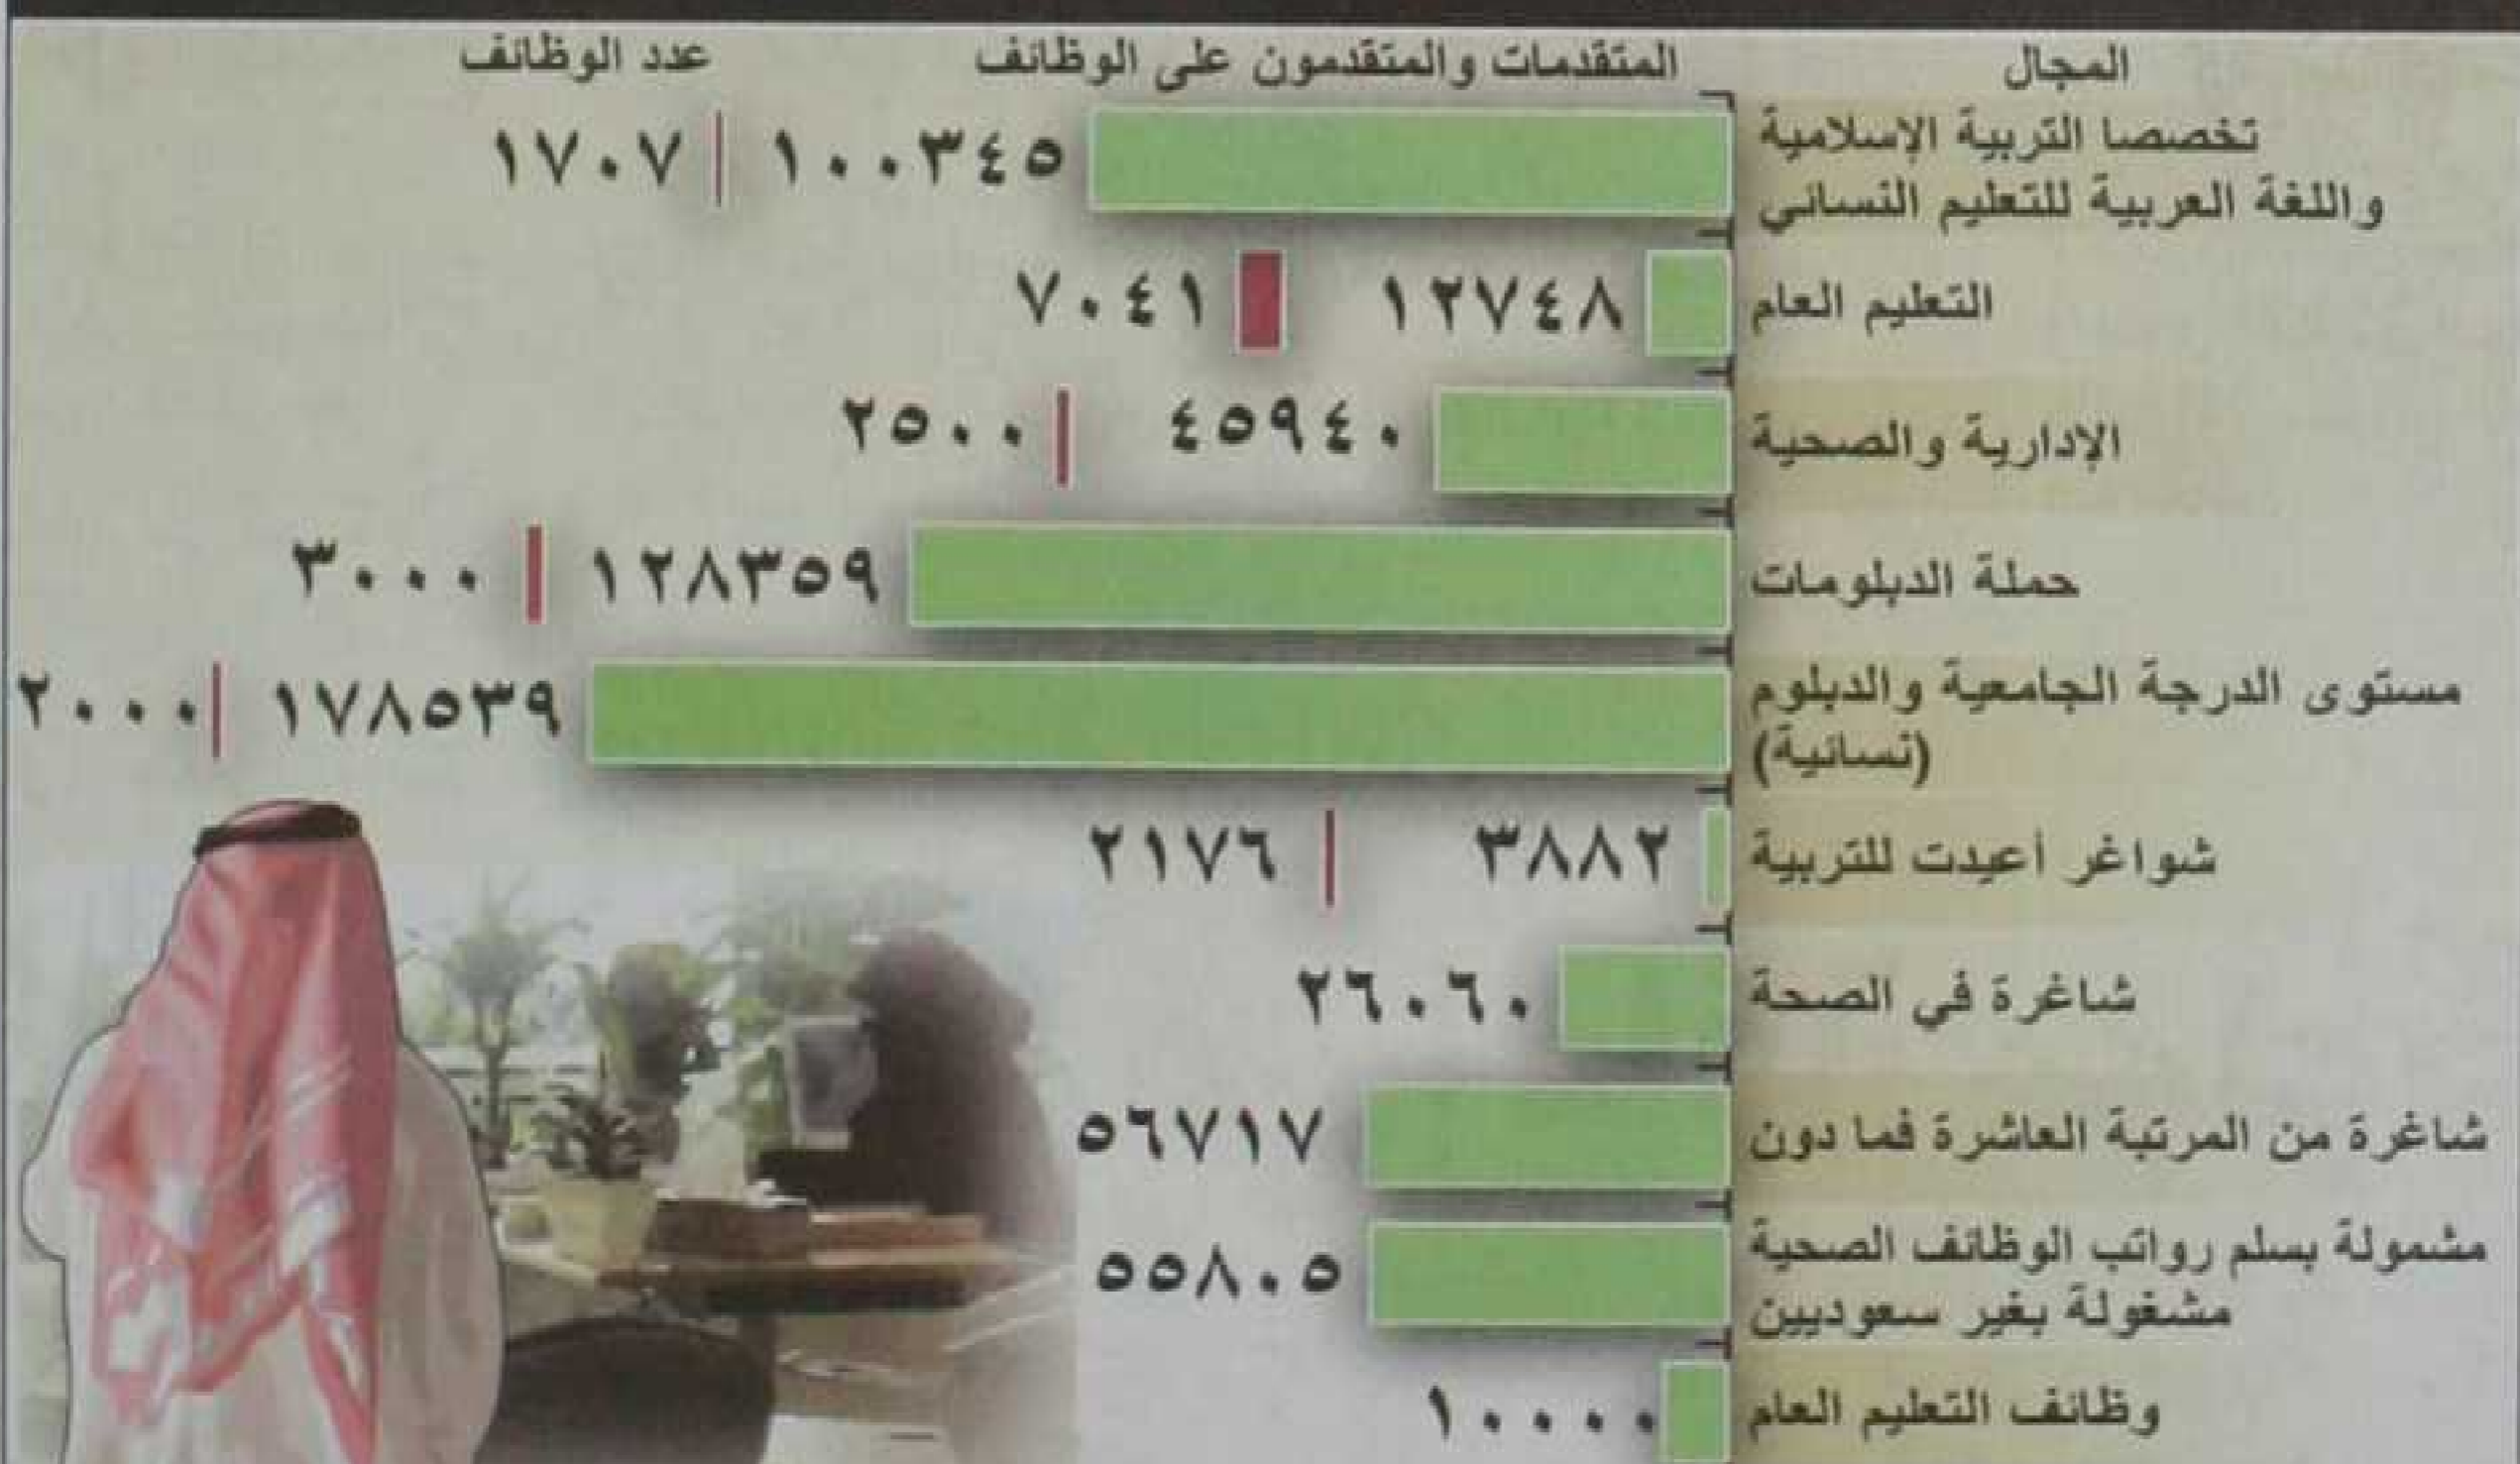 المجال المتقدمات والمتقدمون على الوظائف عدد الوظائف
تخصصا التربية الإسلامية
واللغة العربية للتعليم النسائي ١٠٠٣٤٥ ١٧٠٧
التعليم العام ١٢٧٤٨ ٧٠٤١
الإدارية والصحية ٤٥٩٤٠ ٢٥٠٠
حملة الدبلومات ١٢٨٣٥٩ ٣٠٠٠
مستوى الدرجة الجامعية والدبلوم ١٧٨٥٣٩ ٢٠٠٠
(نسائية)
شواغر أعيدت للتربية ٣٨٨٢ ٢١٧٦
شاغرة في الصحة ٢٦٠٦٠
شاغرة من المرتبة العاشرة فما دون ٥٦٧١٧
مشمولة بسلم رواتب الوظائف الصحية
مشغولة بغير سعوديين ٥٥٨٠٥
وظائف التعليم العام ١٠٠٠٠